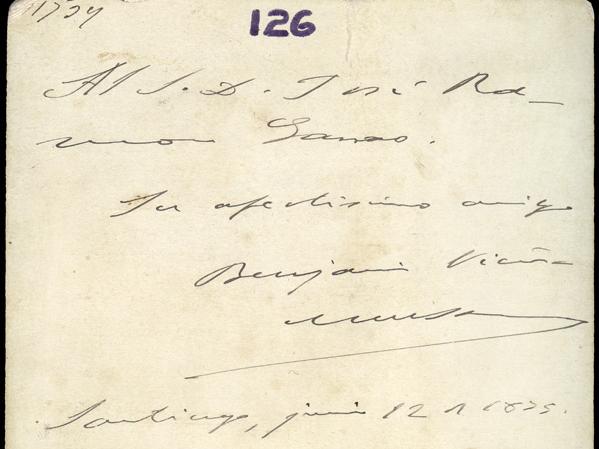 126
Al S. D. José Ra-
mon
Su afectisimo amigo
Benjamin Vicuña
Mackenna
Santiago, junio 12 de 1875.